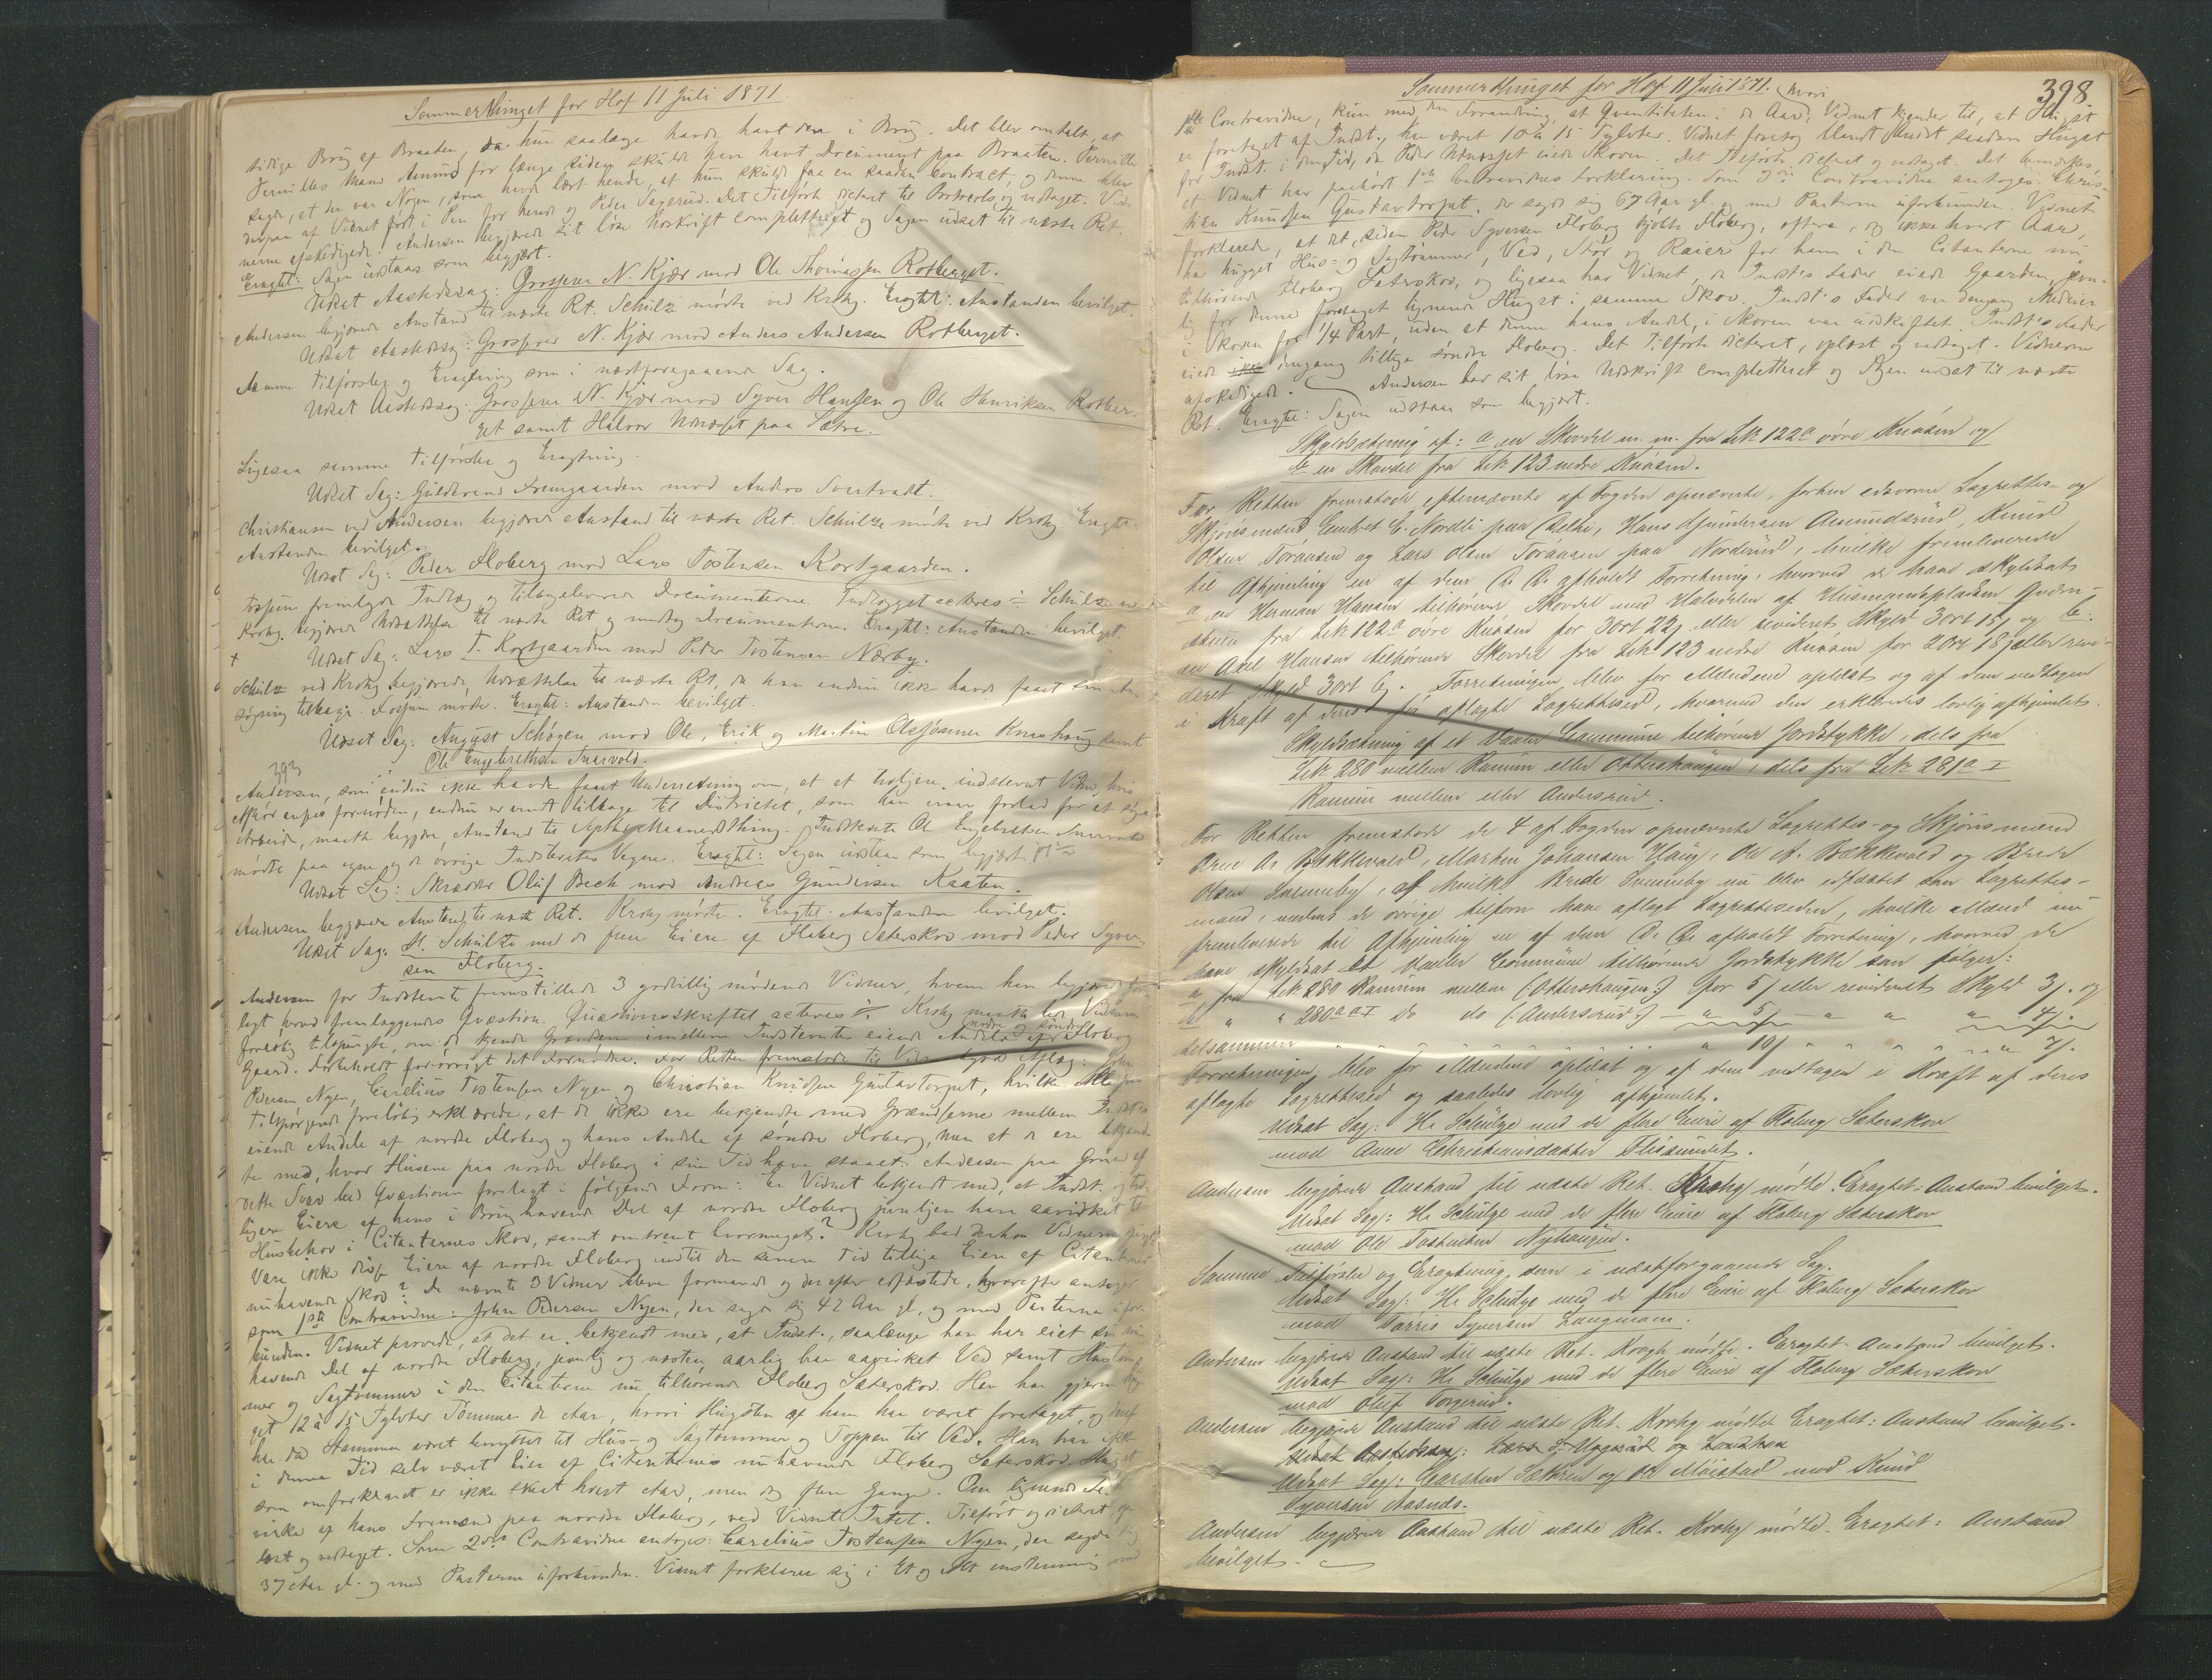 Sommerthinget for Hof 11 Juli 1871.
tidige Brug af Braaten, da hun saalænge havde havt den i Brug. Det blev omtalt, at
Pernilles Mand Amund for længe siden skulde have havt Document paa Braaten. Pernille
sagde, at der var Nogen, som havde lært hende, at hun skulde faa en saadan Contract, og denne blev
derpaa af Vidnet ført i Pen for hende og Peder Sagerud. Det Tilførte dicteret til Protocols og vedtaget. Vid-
nerne afskedigede. Andersen begjærede sit løse Udskrift completteret og Sagen udsat til næste Ret.
Eragtet: Sagen udstaar som begjært.
Udsat Aastedssag: Grosserer N. Kjær mod Ole Thomassen Rotberget.
Andersen begjærede Anstand til næste Ret. Schulze mødte ved Krohg. Eragtet: Anstanden bevilget.
Udsat Aastedssag: Grosserer N. Kjær mod Anders Andersen Rotberget.
Samme Tilførsler og Eragtning som i næstforegaaende Sag.
Udsat Aastedssag: Grosserer N. Kjær mod Syver Hansen og Ole Henriksen Rotber-
get samt Halvor paa Sætre.
Ligesaa samme Tilførsler og Eragtning.
Udsat Sag: Guldbrand Fremgaarden mod Anders Svartvadt.
Christiansen ved Andersen begjærede Anstand til næste Ret. Schulze mødte ved Krohg. Eragtet:
Anstanden bevilget.
Udsat Sag: Peder Floberg mod Lars Tostensen Kortgaarden.
Fossum fremlagde Indlæg og tilbageleverede Documenterne. Indlægget acteres. Schulze ved
Krohg begjærede Udsættelse til næste Ret og modtog Documenterne. Eragtet: Anstanden bevilget.
Udsat Sag: Lars T. Kortgaarden mod Peder Tostensen Nærby.
Schulze ved Krohg begjærede Udsættelse til næste Ret, da han endnu ikke havde faaet sin An-
søgning tilbage. Fossum mødte. Eragtet: Anstanden bevilget.
Udsat Sag: August Schøyen mod Ole, Erik og Martin Olesønner Knashaug samt
Ole Engebrethsen Snarvold.
393
Andersen, som endnu ikke havde faaet Underretning om, at et tvoljen indstevnt Vidne, hvis
er fornøden, endnu er vendt tilbage til Districtet, som han var forlad for at søge
Arbeide, maatte begjære Anstand til Septbr Maanedsthing. Indstevnte Ole Engebretsen Snarvold
mødte paa egne og de øvrige Indstevntes Vegne. Eragtet: Sagen udstaar som begjært.
Udsat Sag: Skrædder Oluf Bech mod Andreas Gundersen Kaaten.
Andersen begjærede Anstand til næste Ret. Krohg mødte. Eragtet: Anstanden bevilget.
Udsat Sag: H. Schulze med de flere Eiere af Floberg Sæterskov mod Peder Syver-
sen Floberg.
Andersen for Indstevnte fremstillede 3 godvillig mødende Vidner, hvem han begjærede fore-
lagt hoved fremlæggendes Qvæstion. Qvæstionsskriftet acteres. Krohg maatte bede Vidnerne
foreløbig tilspurgte, om de kjende Grændsen imellem Indstevntes eiende Andele af nordre og søndre Floberg
Gaard. Forbeholdt forøvrigt det Fornødne. For Retten fremstode til Vidnesbyrds Aflæg: John
Pedersen Nyen, Carelius Tostensen Nyen og Christian Knudsen Gustavtorpet, hvilke Alle paa
Tilspørgende foreløbig erklærede, at de ikke ere bekjendte med Grændserne mellem Indst's
eiende Andele af nordre Floberg og hans Andele af søndre Floberg, men at de ere bekjend-
te med, hvor Husene paa nordre Floberg i sin Tid have staaet. Andersen paa Grund af
dette Svar bad Qvæstionen forelagt i følgende Form: Er Vidnet bekjendt med, at Indst. og tid-
ligere Eiere af hans i Brug havende Del af nordre Floberg jevnligen have aavirket til
Husbehov i Citanternes Skov, samt omtrent hvormeget? Krohg bad derhos Vidnerne spurgt:
Vare ikke disse Eiere af nordre Floberg indtil den senere Tid tillige Eiere af Citanternes
nuhavende Skov? De nævnte 3 Vidner bleve formanede og derefter edfæstede, hvorefter antoges
som 1ste Contravidne: John Pedersen Nyen, der sagde sig 42 Aar gl, og med Parterne ufor-
bunden. Vidnet provede, at det er bekjendt med, at Indst., saalænge han har eiet sin nu
havende Del af nordre Floberg, jevnlig og næsten aarlig har aavirket Ved samt Hustøm-
mer og Sagtømmer i den Citanterne nu tilhørende Floberg Sæterskov. Han har gjerne hug-
get 12 à 15 Tylvter Tømmer de Aar, hvori Hugsten af ham har været foretaget, og deraf
har da Stammen været benyttet til Hus- og Sagtømmer og Toppen til Ved. Han har ikke
i denne Tid selv været Eier af Citanternes nuhavende Floberg Sæterskov. Hugst
som omforklaret er ikke skeet hvert Aar, men dog flere Gange. Om lignende Aa-
virke af hans Formænd paa nordre Floberg, ved Vidnet Intet. Tilført og dicteret op-
læst og vedtaget. Som 2det Contravidne antoges: Carelius Tostensen Nyen, der sagde sig
37 Aar gl. og med Parterne uforbunden. Vidnet forklarer sig i Et og Alt enstemmig med
398
Sommerthinget for Hof 11 Juli 1871.
1ste Contravidne, kun med den Forandring, at Qvantiteten de Aar, hvori Vidnet kjender til, at Hugst
er foretaget af Indst., har været 10 à 15 Tylvter. Vidnet foretog blandt Andet saadan Hugst
for Indst. i den Tid, da Peder eiede Skoven. Det Tilførte dicteret og vedtaget. Det bemærkes,
at Vidnet har paahørt 1ste Contravidnes Forklaring. Som 3die Contravidne antoges: Chris-
tian Knudsen Gustavtorpet, der sagde sig 67 Aar gl. og med Parterne uforbunden. Vidnet
forklarede, at det, siden Peder Syversen Floberg kjøbte Floberg, oftere, og ikke hvert Aar,
har hugget Hus- og Sagtømmer, Ved, Stør og Raier for ham i den Citanterne nu
tilhørende Floberg Sæterskov, og ligesaa har Vidnet, da Indst's Fader eiede Gaarden, jevn-
lig for denne foretaget lignende Hugst i samme Skov. Indst's Fader var dengang Medeier
i Skoven for 1/4 Part, uden at denne hans Andel i Skoven var udskiftet. Indst's Fader
eiede dengang tillige søndre Floberg. Det Tilførte dicteret, oplæst og vedtaget. Vidnerne
afskedigede. Andersen bad sit løse Udskrift completteret og Sagen udsat til næste
Ret. Eragtet: Sagen udstaar som begjært.
Skyldsætning af: a en Skovdel m. m. fra Lth 122a øvre Knusen og
b en Skovdel fra Lth 123 nedre Knusen.
For Retten fremstode efternævnte af Fogden opnævnte, forhen edsvorne Lagrettes- og
Skjønsmænd Embret E. Nordli paa Melbe, Hans Gundersen Amundsrud, Knud
Olsen Toransen og Lars Olsen Toransen paa Norderud, hvilke fremleverede
til Afhjemling en af dem D. D. afholdt Forretning, hvorved de have skyldsat
a en Herman Hansen tilhørende Skovdel med Halvdelen af Husmandspladsen
fra Lth 122a øvre Knusen for 3 ort 22 s. eller revideret Skyld 3 ort 15 s og b:
en Axel Hansen tilhørende Skovdel fra Lth 123 nedre Knusen for 2 ort 18 s eller revi-
deret Skyld 3 ort 6 s. Forretningen blev for Mændene oplæst og af dem vedtagen
i Kraft af deres før aflagte Lagrettesed, hvorved den erklæredes lovlig afhjemlet.
Skyldsætning af et Vaaler Commune tilhørende Jordstykke, dels fra
Lth 280 mellem Ramm eller Ottershaugen, dels fra Lth 281a I
Ramm mellem eller Andersrud.
For Retten fremstode de 4 af Fogden opnævnte Lagrettes- og Skjønsmænd
Arne A. Bækkevold, Marthin Johansen Haug, Ole A. Bækkevold og Brede
Olsen Svenneby, af hvilke Brede Svenneby nu blev edfæstet som Lagrettes-
mand, medens de øvrige tilforn have aflagt Lagretteseden, hvilke Mænd nu
fremleverede til Afhjemling en af dem D. D. afholdt Forretning, hvorved de
have skyldsat et Vaaler Commune tilhørende Jordstykke som følger:
a fra Lth 280 Ramm mellem (Ottershaugen) for 5 s eller revideret Skyld 3 s. og
b " " 280aa I do do (: Andersrud:) - " 5 s - " " " 4 s
tilsammen " " " " " " " " 10 s " " " " " 7 s.
Forretningen blev for Mændene oplæst og af dem vedtagen i Kraft af deres
aflagte Lagrettesed og saaledes lovlig afhjemlet.
Udsat Sag: H. Schulze med de flere Eiere af Floberg Sæterskov
mod Anne Christiansdatter Flissundet.
Andersen begjærede Anstand til næste Ret. Krohg mødte. Eragtet: Anstand bevilget.
Udsat Sag: H. Schulze med de flere Eiere af Floberg Sæterskov
mod Ole Tostensen Nyhaugen.
Samme Tilførsler og Eragtning som i næstforegaaende Sag.
Udsat Sag: H. Schulze med de flere Eiere af Floberg Sæterskov
mod Tarris Syversen Langmoen.
Andersen begjærede Anstand til næste Ret. Krogh mødte. Eragtet: Anstand bevilget.
Udsat Sag: H. Schulze med de flere Eiere af Floberg Sæterskov
mod Oluf Torgerud.
Andersen begjærede Anstand til næste Ret. Krohg mødte. Eragtet: Anstand bevilget.
Udsat Aastedssag: Lars og
Udsat Sag: Carsten Sætren og Ole Moistad mod Knud
Syversen Aasnes.
Andersen begjærede Anstand til næste Ret. Krohg mødte. Eragtet: Anstand
bevilget.